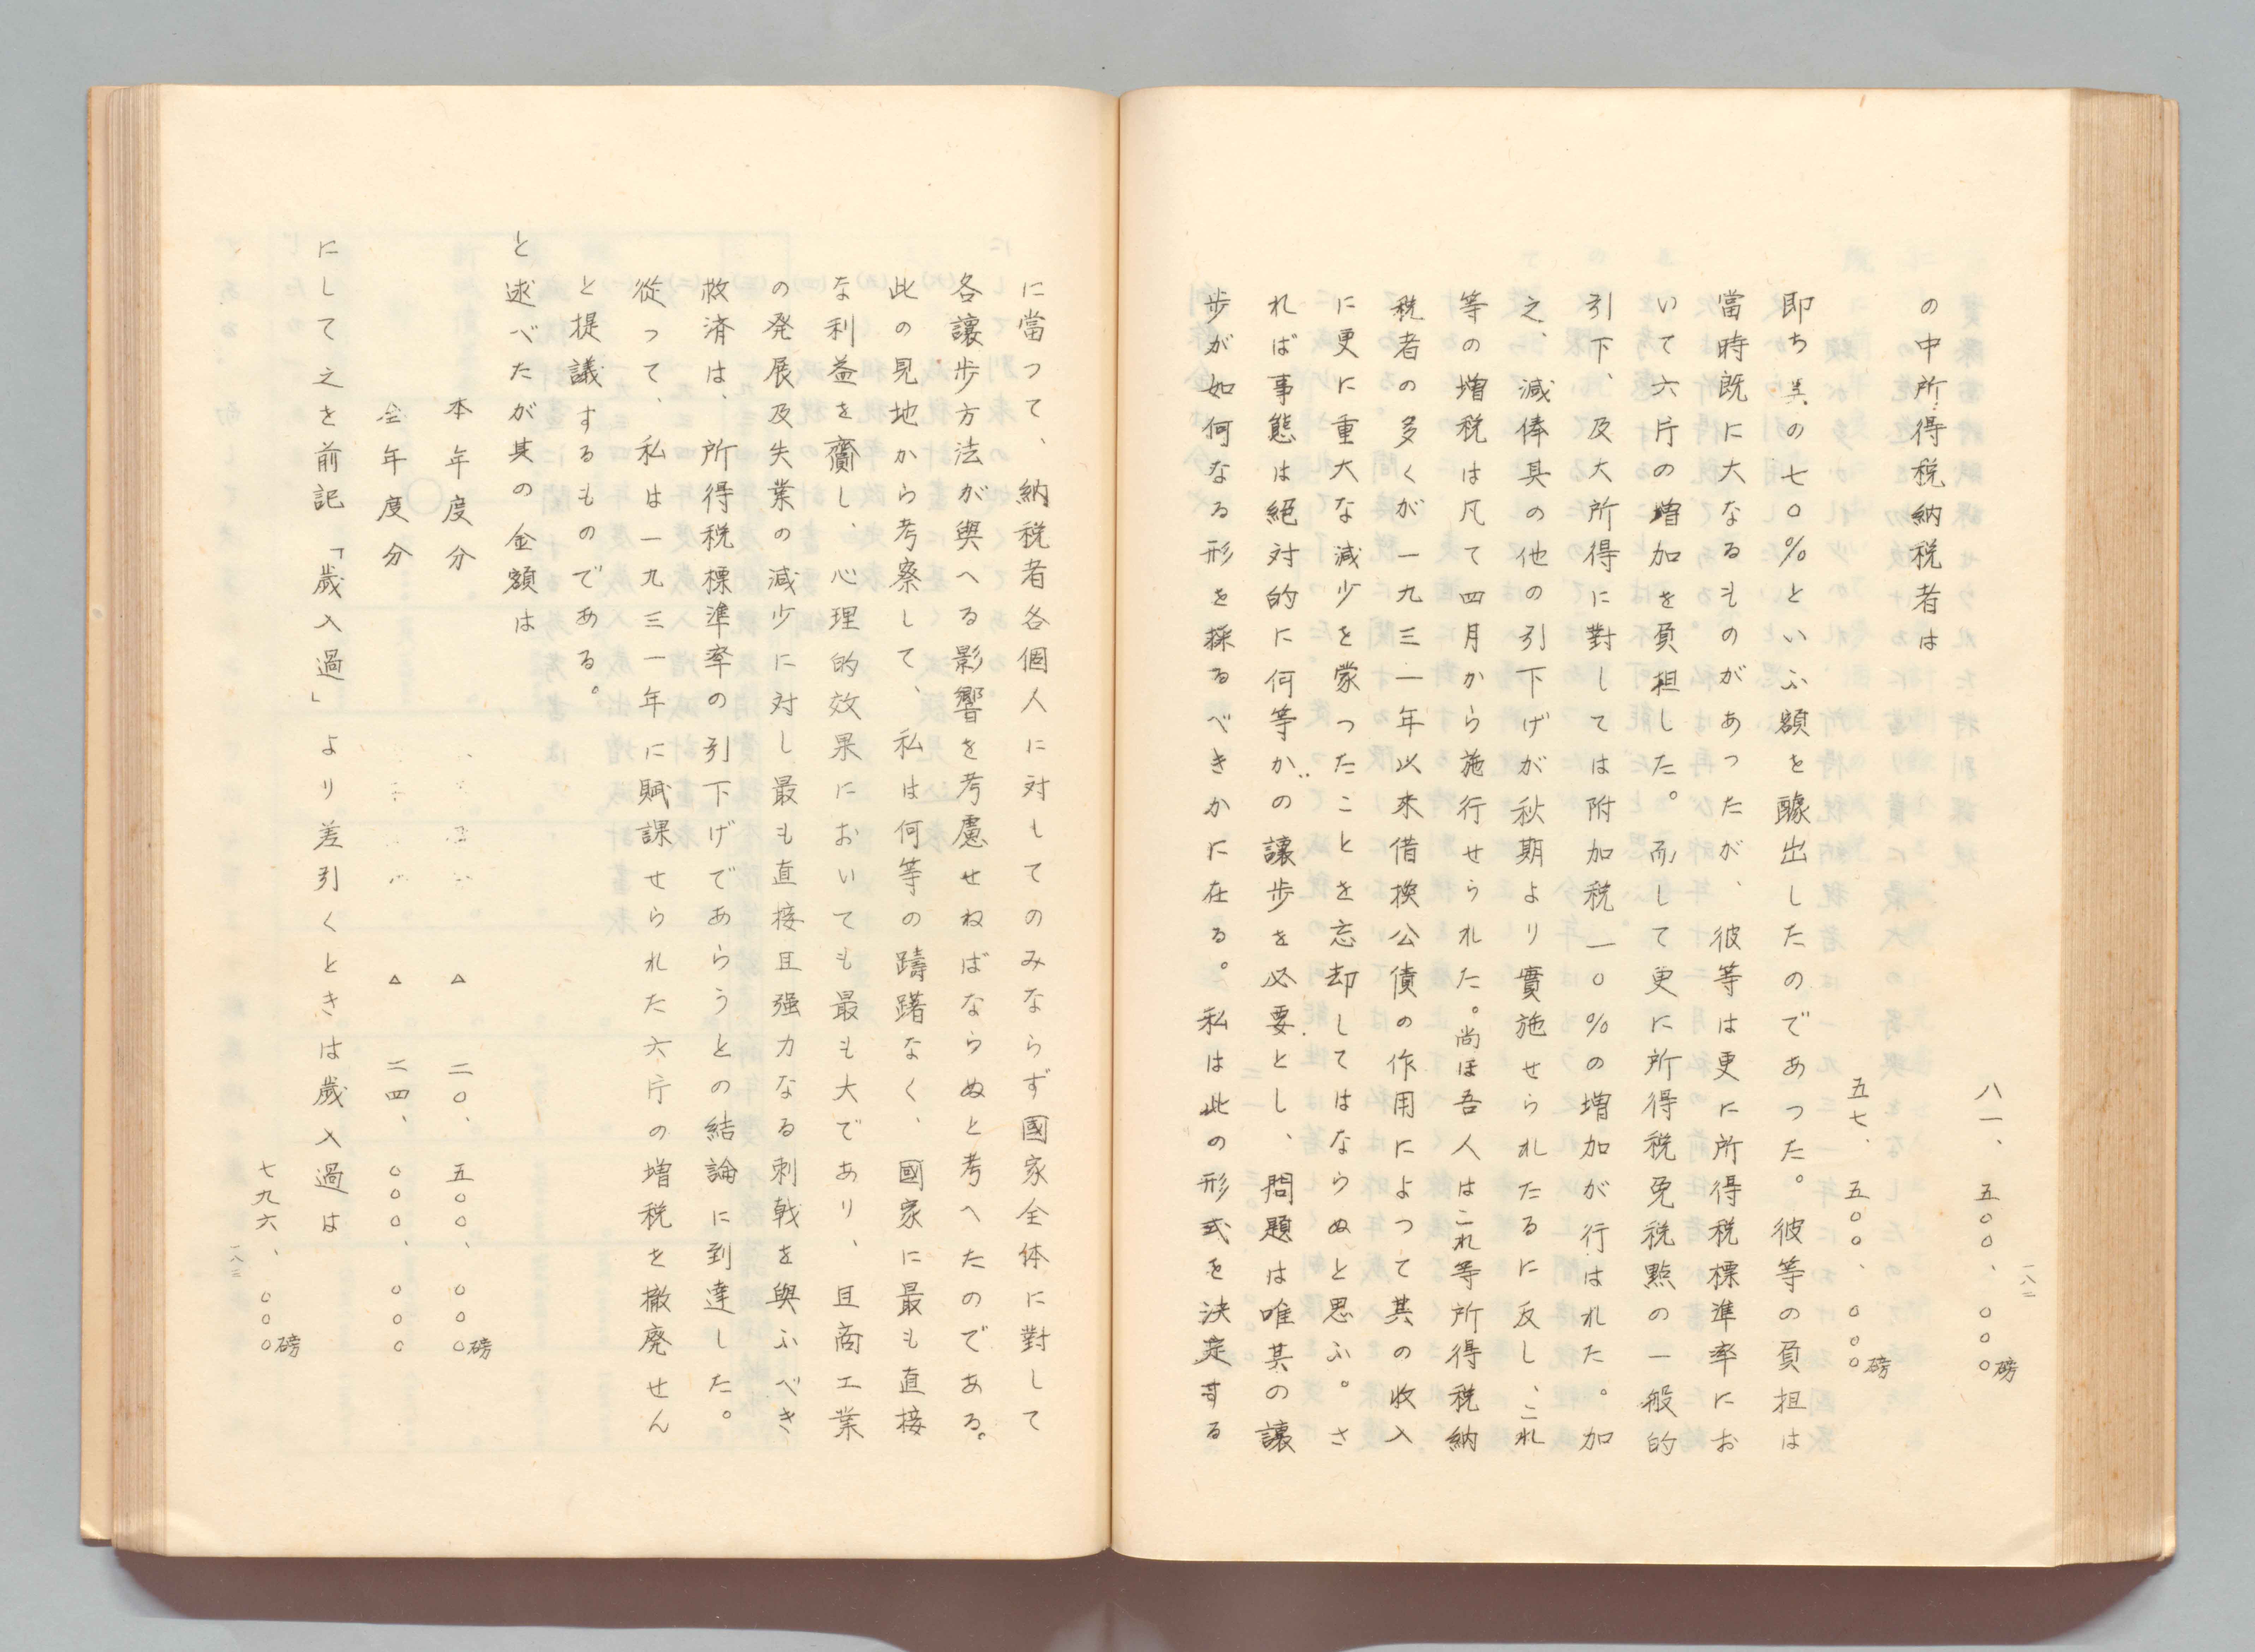 八一、五〇〇、〇〇〇磅
の中所得税納税者は
五七、五〇〇、〇〇〇磅
即ち其の七〇%といふ額を醵出したのであつた。彼等の負担は
當時既に大なるものがあつたが、彼等は更に所得税標準率にお
いて六片の増加を負担した。而して更に所得税免税點の一般的
引下、及大所得に對しては附加税一〇%の増加が行はれた。加
之、減俸其の他の引下げが秋期より實施せられたるに反し、これ
等の増税は凡て四月から施行せられた。尚ほ吾人はこれ等所得税納
税者の多くが一九三一年以來借換公債の作用によつて其の收入
に更に重大な減少を蒙つたことを忘却してはならぬと思ふ。さ
れば事態は絕対的に何等かの讓步を必要とし、問題は唯其の讓
步が如何なる形を採るべきかに在る。私は此の形式を決定する
一八二
に當つて、納税者各個人に対してのみならず國家全体に對して
各讓步方法が與へる影響を考慮せねばならぬと考へたのである。
此の見地から考察して、私は何等の躊躇なく、國家に最も直接
な利益を齎し、心理的效果においても最も大であり、且商工業
の発展及失業の減少に対し最も直接且强力なる刺戟を與ふべき
救済は、所得税標準率の引下げであらうとの結論に到達した。
從つて、私は一九三一年に賦課せられた六片の増税を撤廃せん
と提議するものである。
と述べたが其の金額は
本年度分 △ 二〇、五〇〇、〇〇〇磅
全年度分 △ 二四、〇〇〇、〇〇〇
にして之を前記「歲入過」より差引くときは歲入過は
七九六、〇〇〇磅
一八三